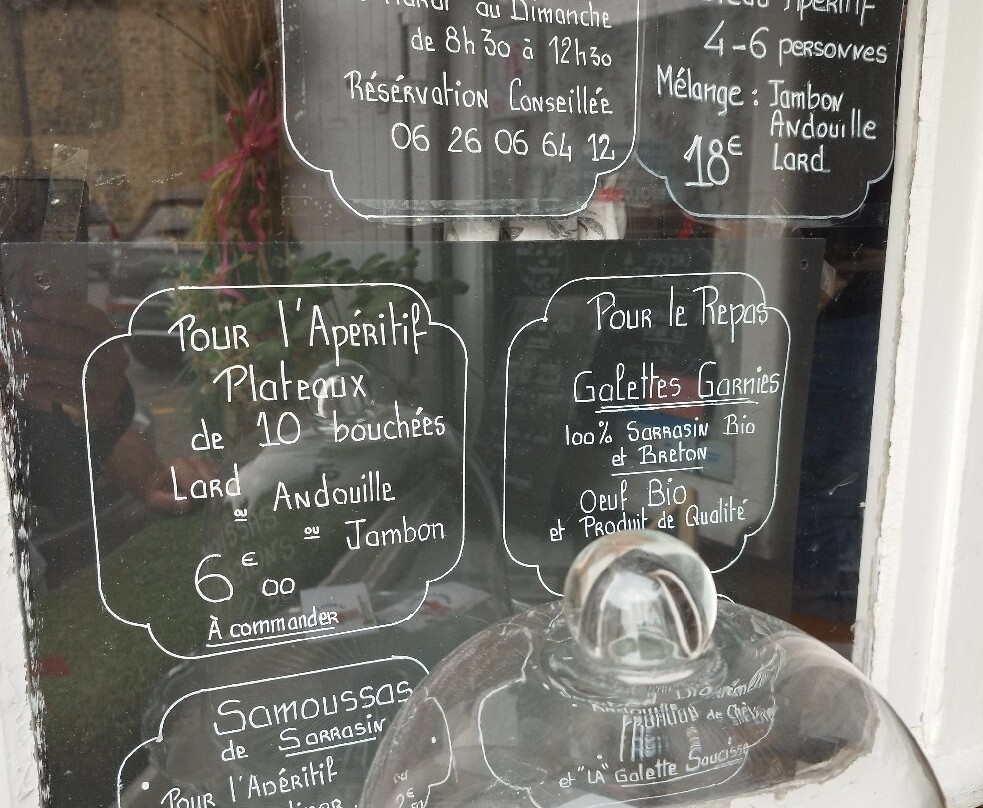 au Dimanche
de 8h30 à 12h30
Résérvation Conseillée
06 26 06 64 12
Apéritif
4-6 personnes
Mélange : Jambon
Andouille
18€ Lard
Pour l'Apéritif
Plateaux
de 10 bouchées
Lard ou Andouille
ou Jambon
6€00
À commander
Pour le Repas
Galettes Garnies
100% Sarrasin Bio
et Breton
Oeuf Bio
et Produit de Qualité
Samoussas
de Sarrasin
Pour l'Apéritif
Andouille
de Chèvre
et "LA" Galette Saucisse